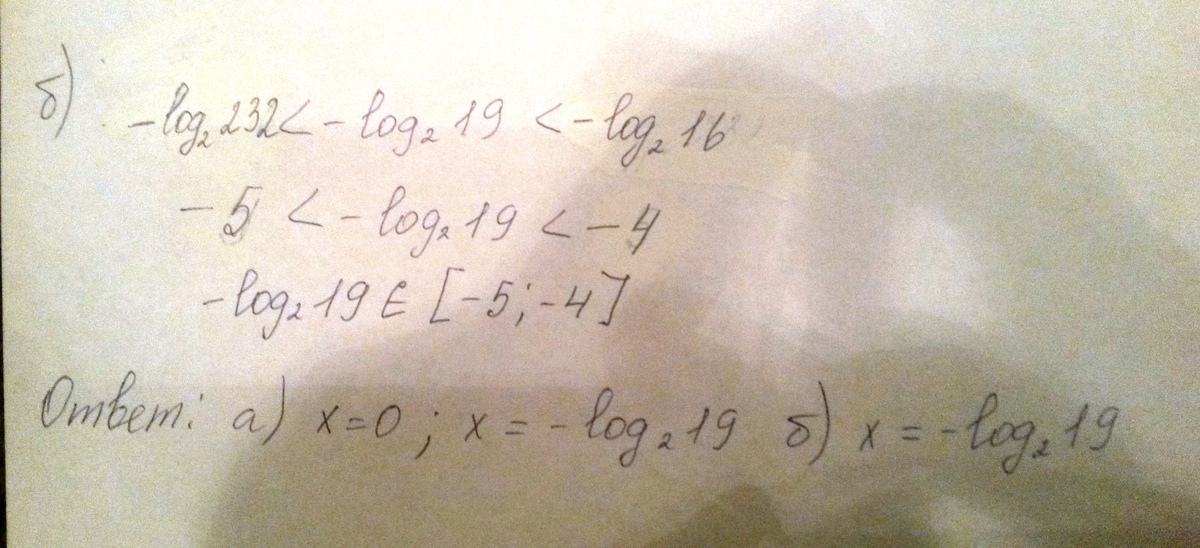 б)
-log₂232 < -log₂19 < -log₂16
-5 < -log₂19 < -4
-log₂19 ∈ [-5; -4]
Ответ: а) x=0; x = -log₂19 б) x = -log₂19